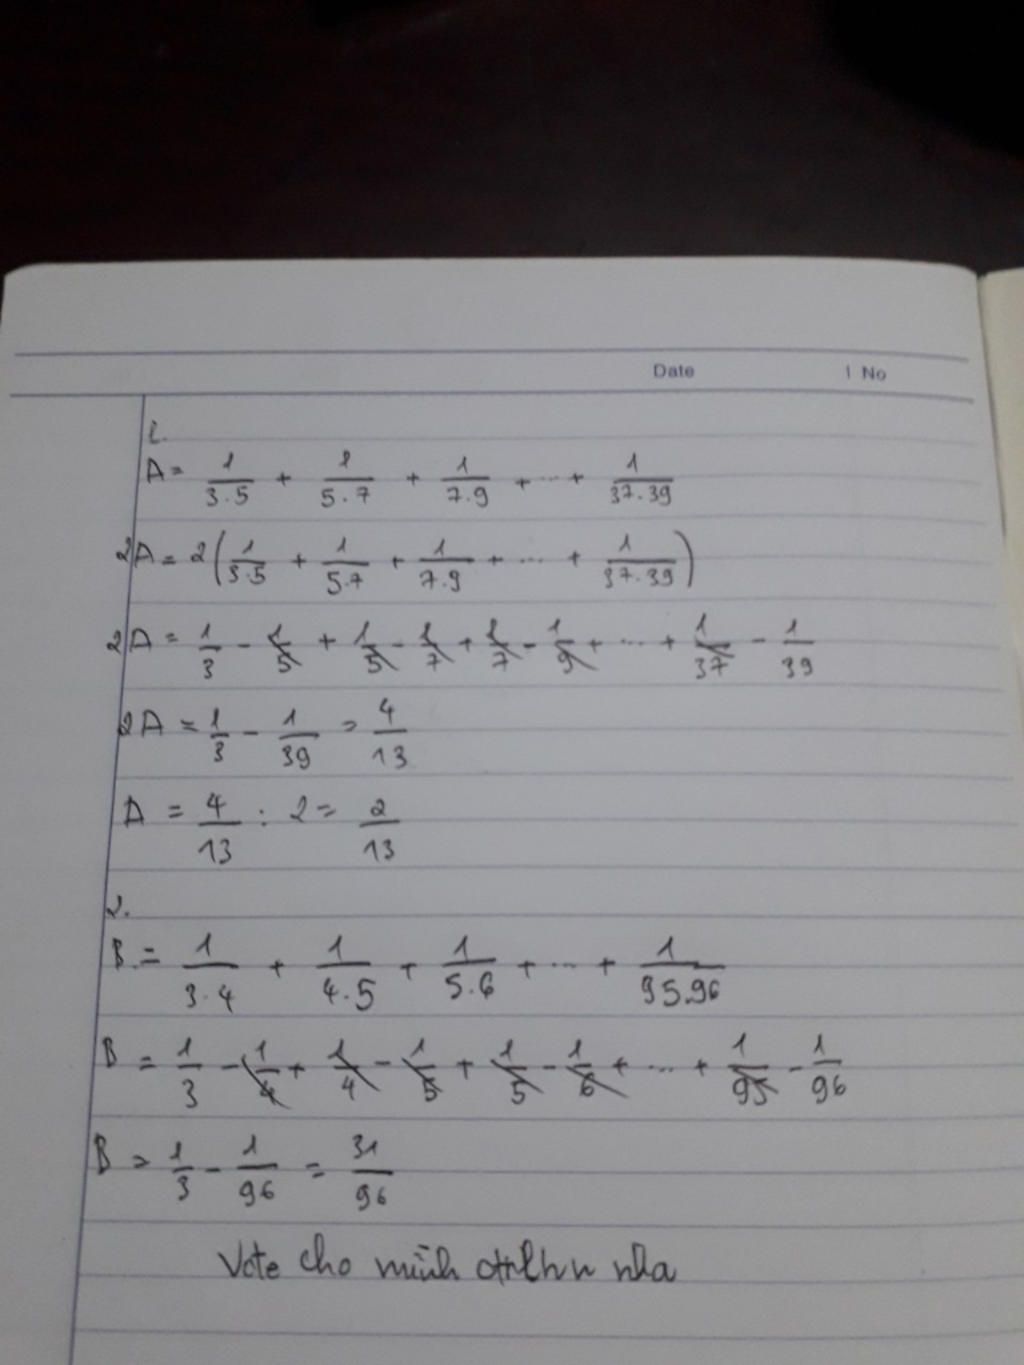 Date | No
1.
A = 1/3.5 + 1/5.7 + 1/7.9 + ... + 1/37.39
2A = 2(1/3.5 + 1/5.7 + 1/7.9 + ... + 1/37.39)
2A = 1/3 - 1/5 + 1/5 - 1/7 + 1/7 - 1/9 + ... + 1/37 - 1/39
2A = 1/3 - 1/39 = 4/13
A = 4/13 : 2 = 2/13
2.
B = 1/3.4 + 1/4.5 + 1/5.6 + ... + 1/95.96
B = 1/3 - 1/4 + 1/4 - 1/5 + 1/5 - 1/6 + ... + 1/95 - 1/96
B = 1/3 - 1/96 = 31/96
Vote cho mình nha